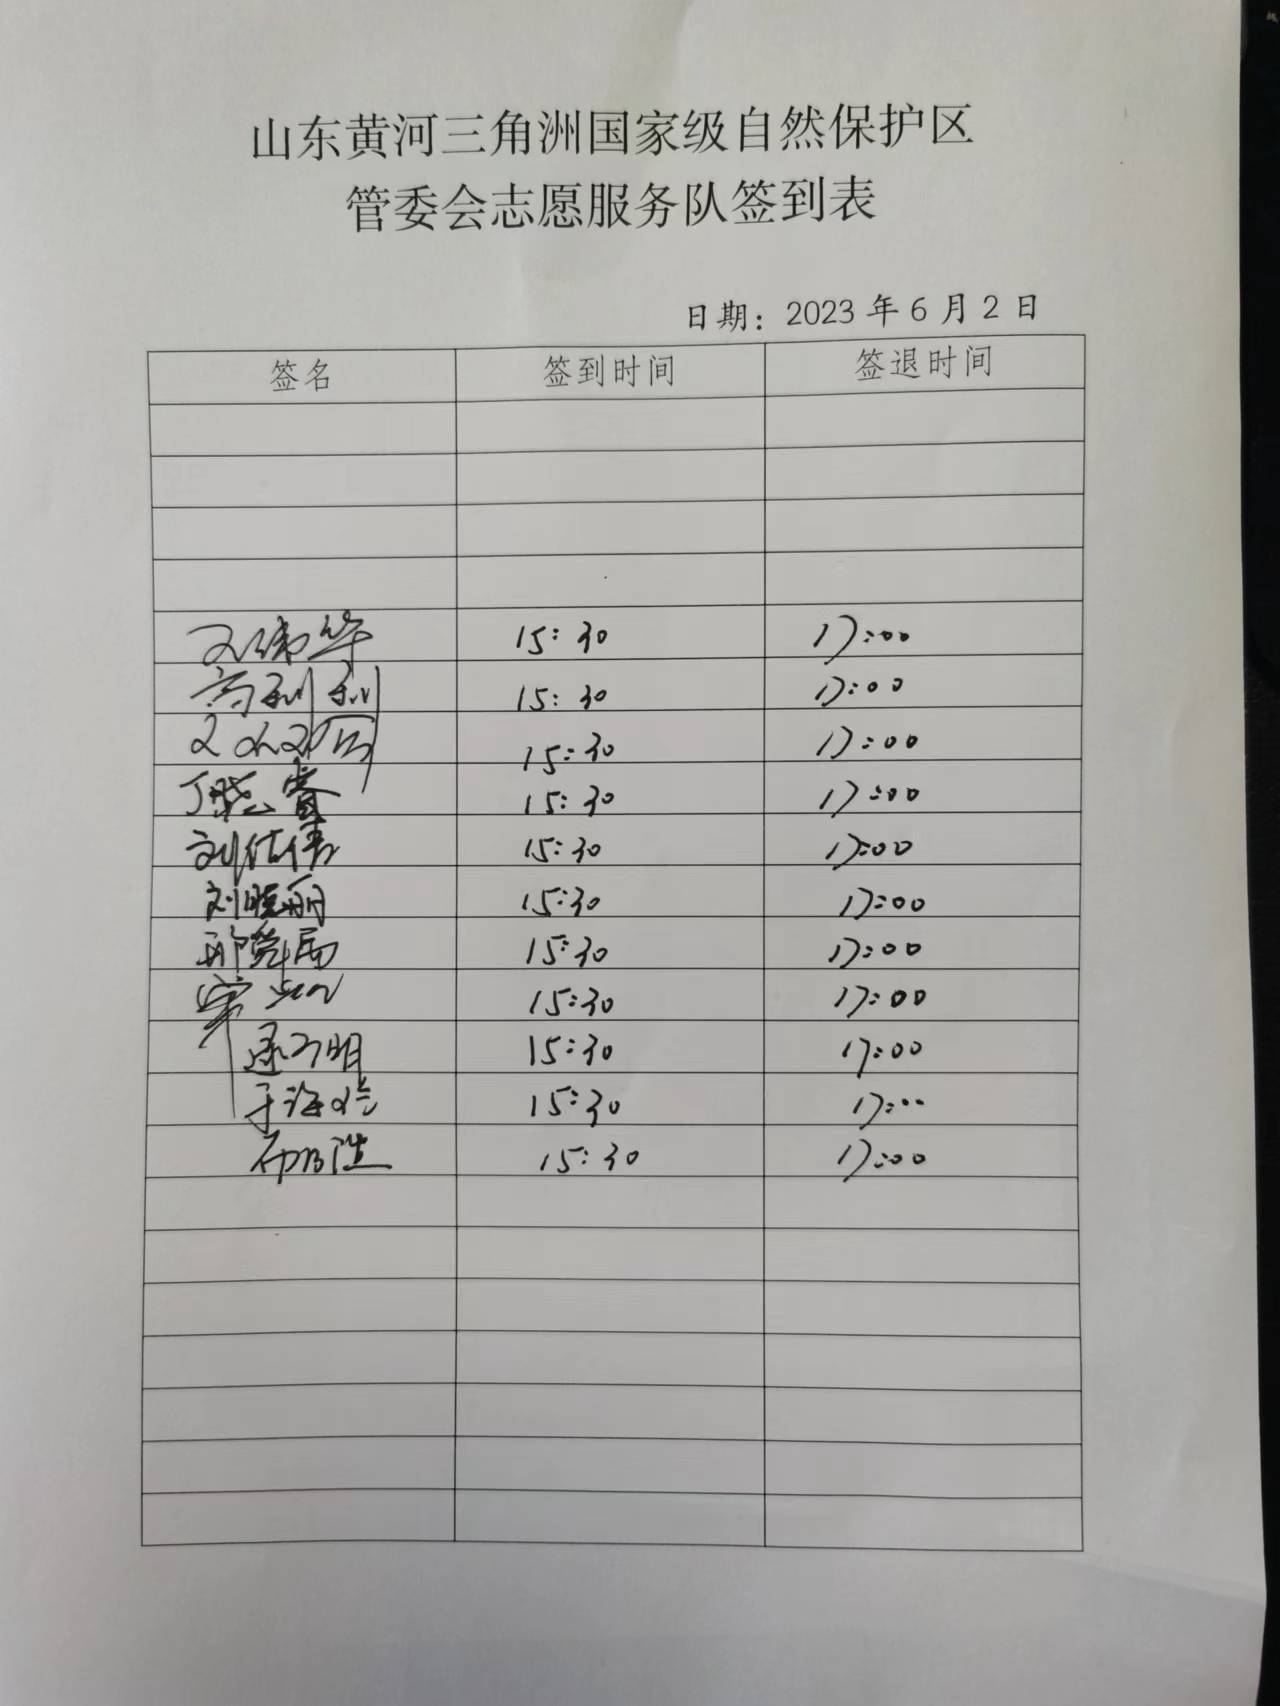 山东黄河三角洲国家级自然保护区
管委会志愿服务队签到表
日期：2023 年 6 月 2 日
签名 签到时间 签退时间
15:30 17:00
高利利 15:30 17:00
15:30 17:00
丁晓睿 15:30 17:00
刘佳伟 15:30 17:00
刘晓丽 15:30 17:00
邢 15:30 17:00
15:30 17:00
15:30 17:00
于海 15:30 17:00
15:30 17:00